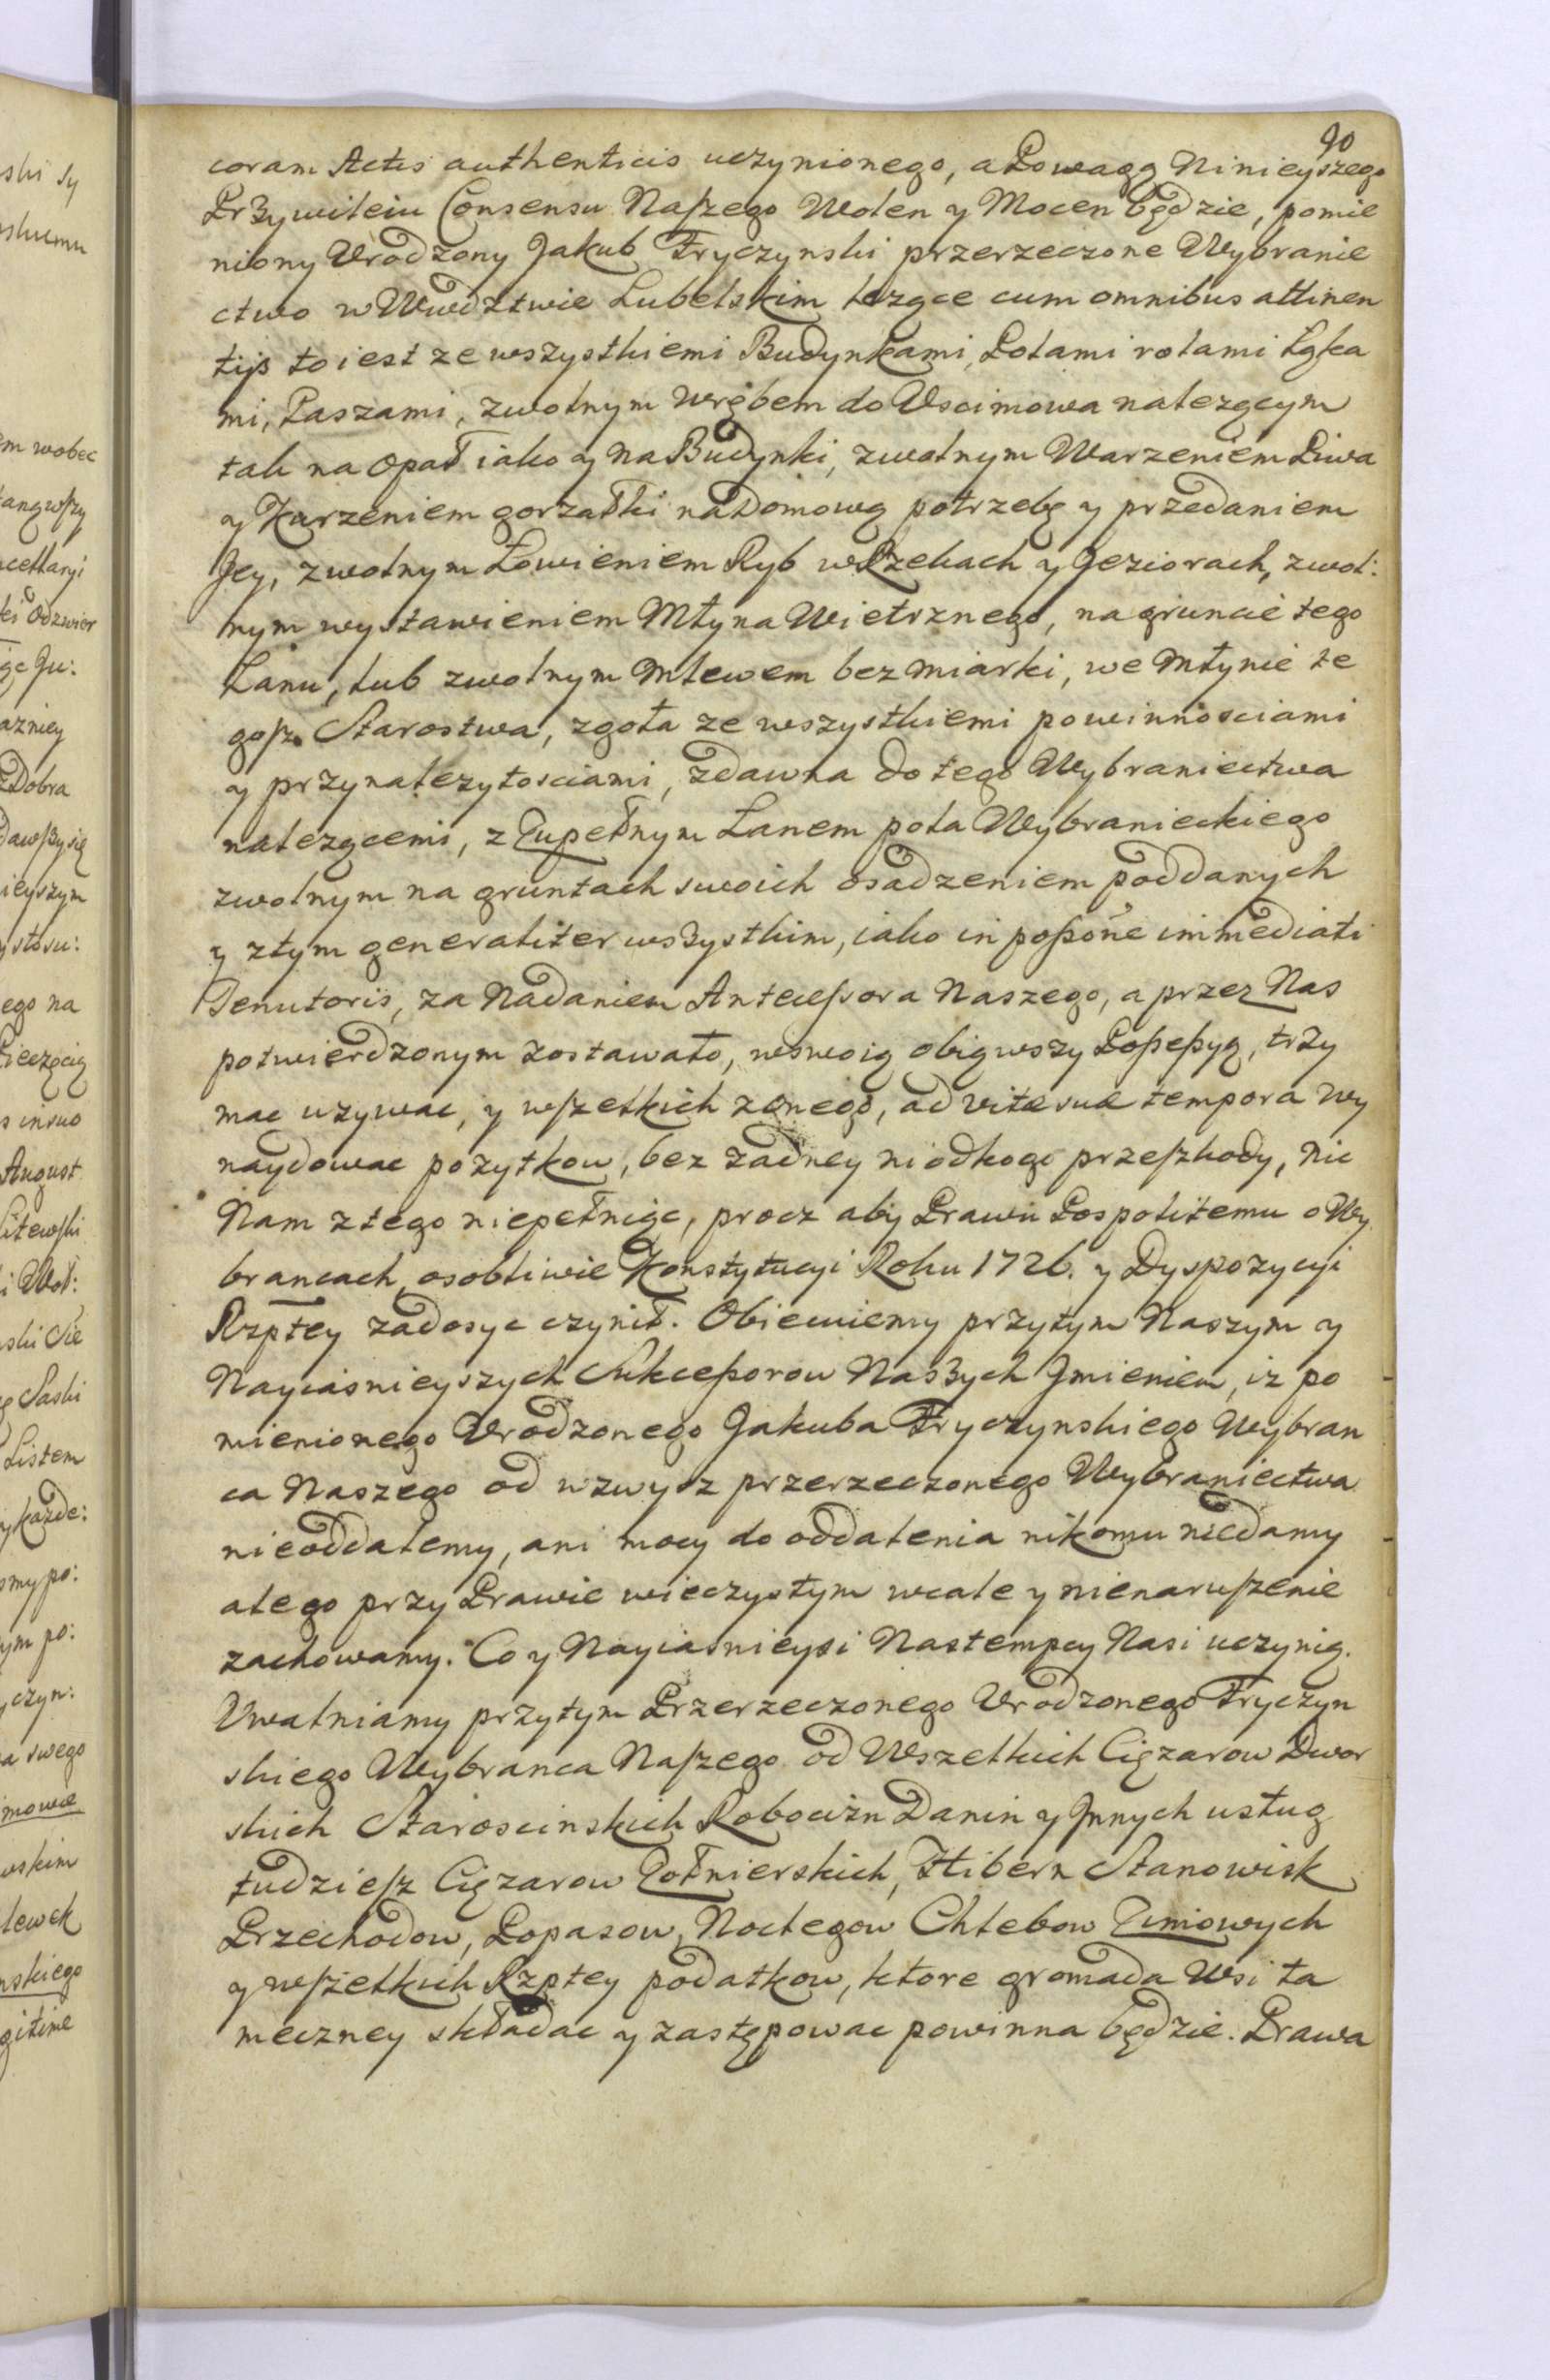 90
coram Actis authenticis uczynionego, a Powagą Ninieyszego
Przywileiu Consensu Naszego Wolen y Mocen będzie, pomie
niony Urodzony Jakub Fryczynski przerzeczone Wybranie
ctwo w Wwdztwie Lubelskim lezące cum omnibus attinen
tijs to iest ze wszystkiemi Budynkami, Polami rolami Łąka
mi, Paszami, zwolnym wrębem do Uscimowa nalezącym
tak na opał iako y na Budynki, zwolnym Warzeniem Piwa
y Kurzeniem gorzałki na Domową potrzebę y przedaniem
Jey, zwolnym Łowieniem Ryb w Rzekach y Jeziorach, zwol:
nym wystawieniem Młyna Wietrznego, na gruncie tego
Łanu, lub zwolnym mlewem bez miarki, we młynie te
gosz Starostwa, zgoła ze wszystkiemi powinnosciami
y przynalezytosciami, zdawna do tego Wybraniectwa
nalezącemi, z Zupełnym Łanem pola Wybranieckiego
zwolnym na gruntach swoich osadzeniem poddanych
y ztym generaliter wszystkim, iako in possone immediati
Tenutoris, za Nadaniem Antecessora Naszego, a przez Nas
potwierdzonym zostawało, w swoią obiąwszy Possessyą, trzy
mac uzywac, y wszelkich z onego, ad vitae suae tempora wy
naydowac pozytkow, bez zadney ni odkogo przeszkody, nic
Nam z tego niepełniąc, procz aby Prawu Pospolitemu o Wy
brancach, osobliwie Konstytucyi Roku 1726. y Dyspozycyi
Rzptey zadosyc czynił. Obiecuiemy przytym Naszym y
Nayiasnieyszych Sukcessorow Naszych Jmieniem, iz po
mienionego Urodzonego Jakuba Fryczynskiego Wybran
ca Naszego od wzwysz przerzeczonego Wybraniectwa
nieoddalemy, ani mocy do oddalenia nikomu niedamy
alego przy Prawie wieczystym wcale y nienaruszenie
zachowamy. Co y Nayiasnieysi Nastempcy Nasi uczynią.
Uwalniamy przytym Przerzeczonego Urodzonego Fryczyn
skiego Wybranca Naszego od Wszelkich Cięzarow Dwor
skich Staroscinskich Robocizn Danin y Jnnych usług
tudziesz Cięzarow Zołnierskich, Hibern Stanowisk
Przechodow, Popasow, Noclegow Chlebow Zimowych
y wszelkich Rzptey podatkow, ktore gromada Wsi ta
meczney składac y zastępowac powinna będzie. Prawa